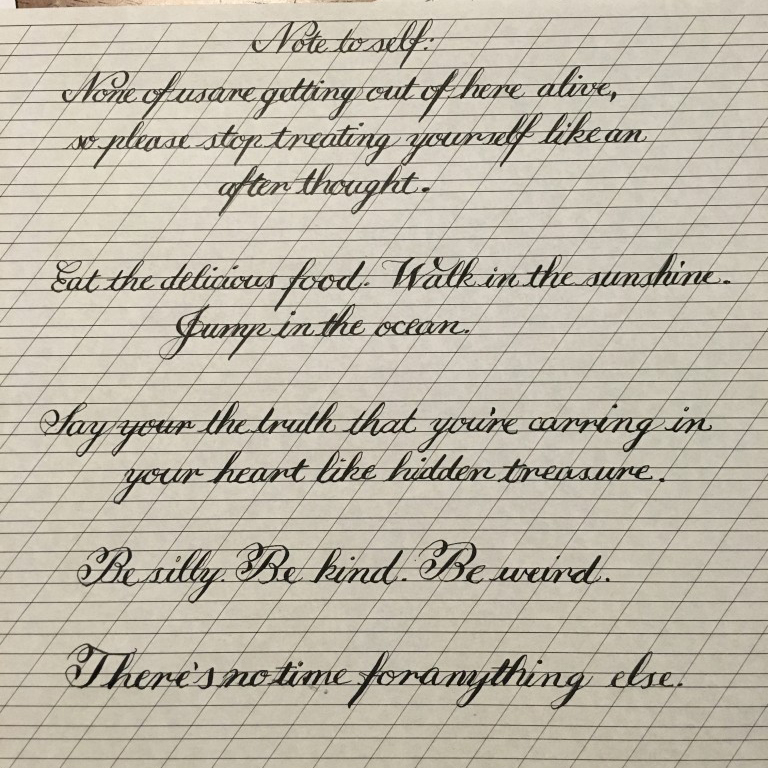 Note to self:
None of us are getting out of here alive,
so please stop treating yourself like an
after thought.
Eat the delicious food. Walk in the sunshine.
Jump in the ocean.
Say your the truth that you're carring in
your heart like hidden treasure.
Be silly. Be kind. Be weird.
There's no time for anything else.